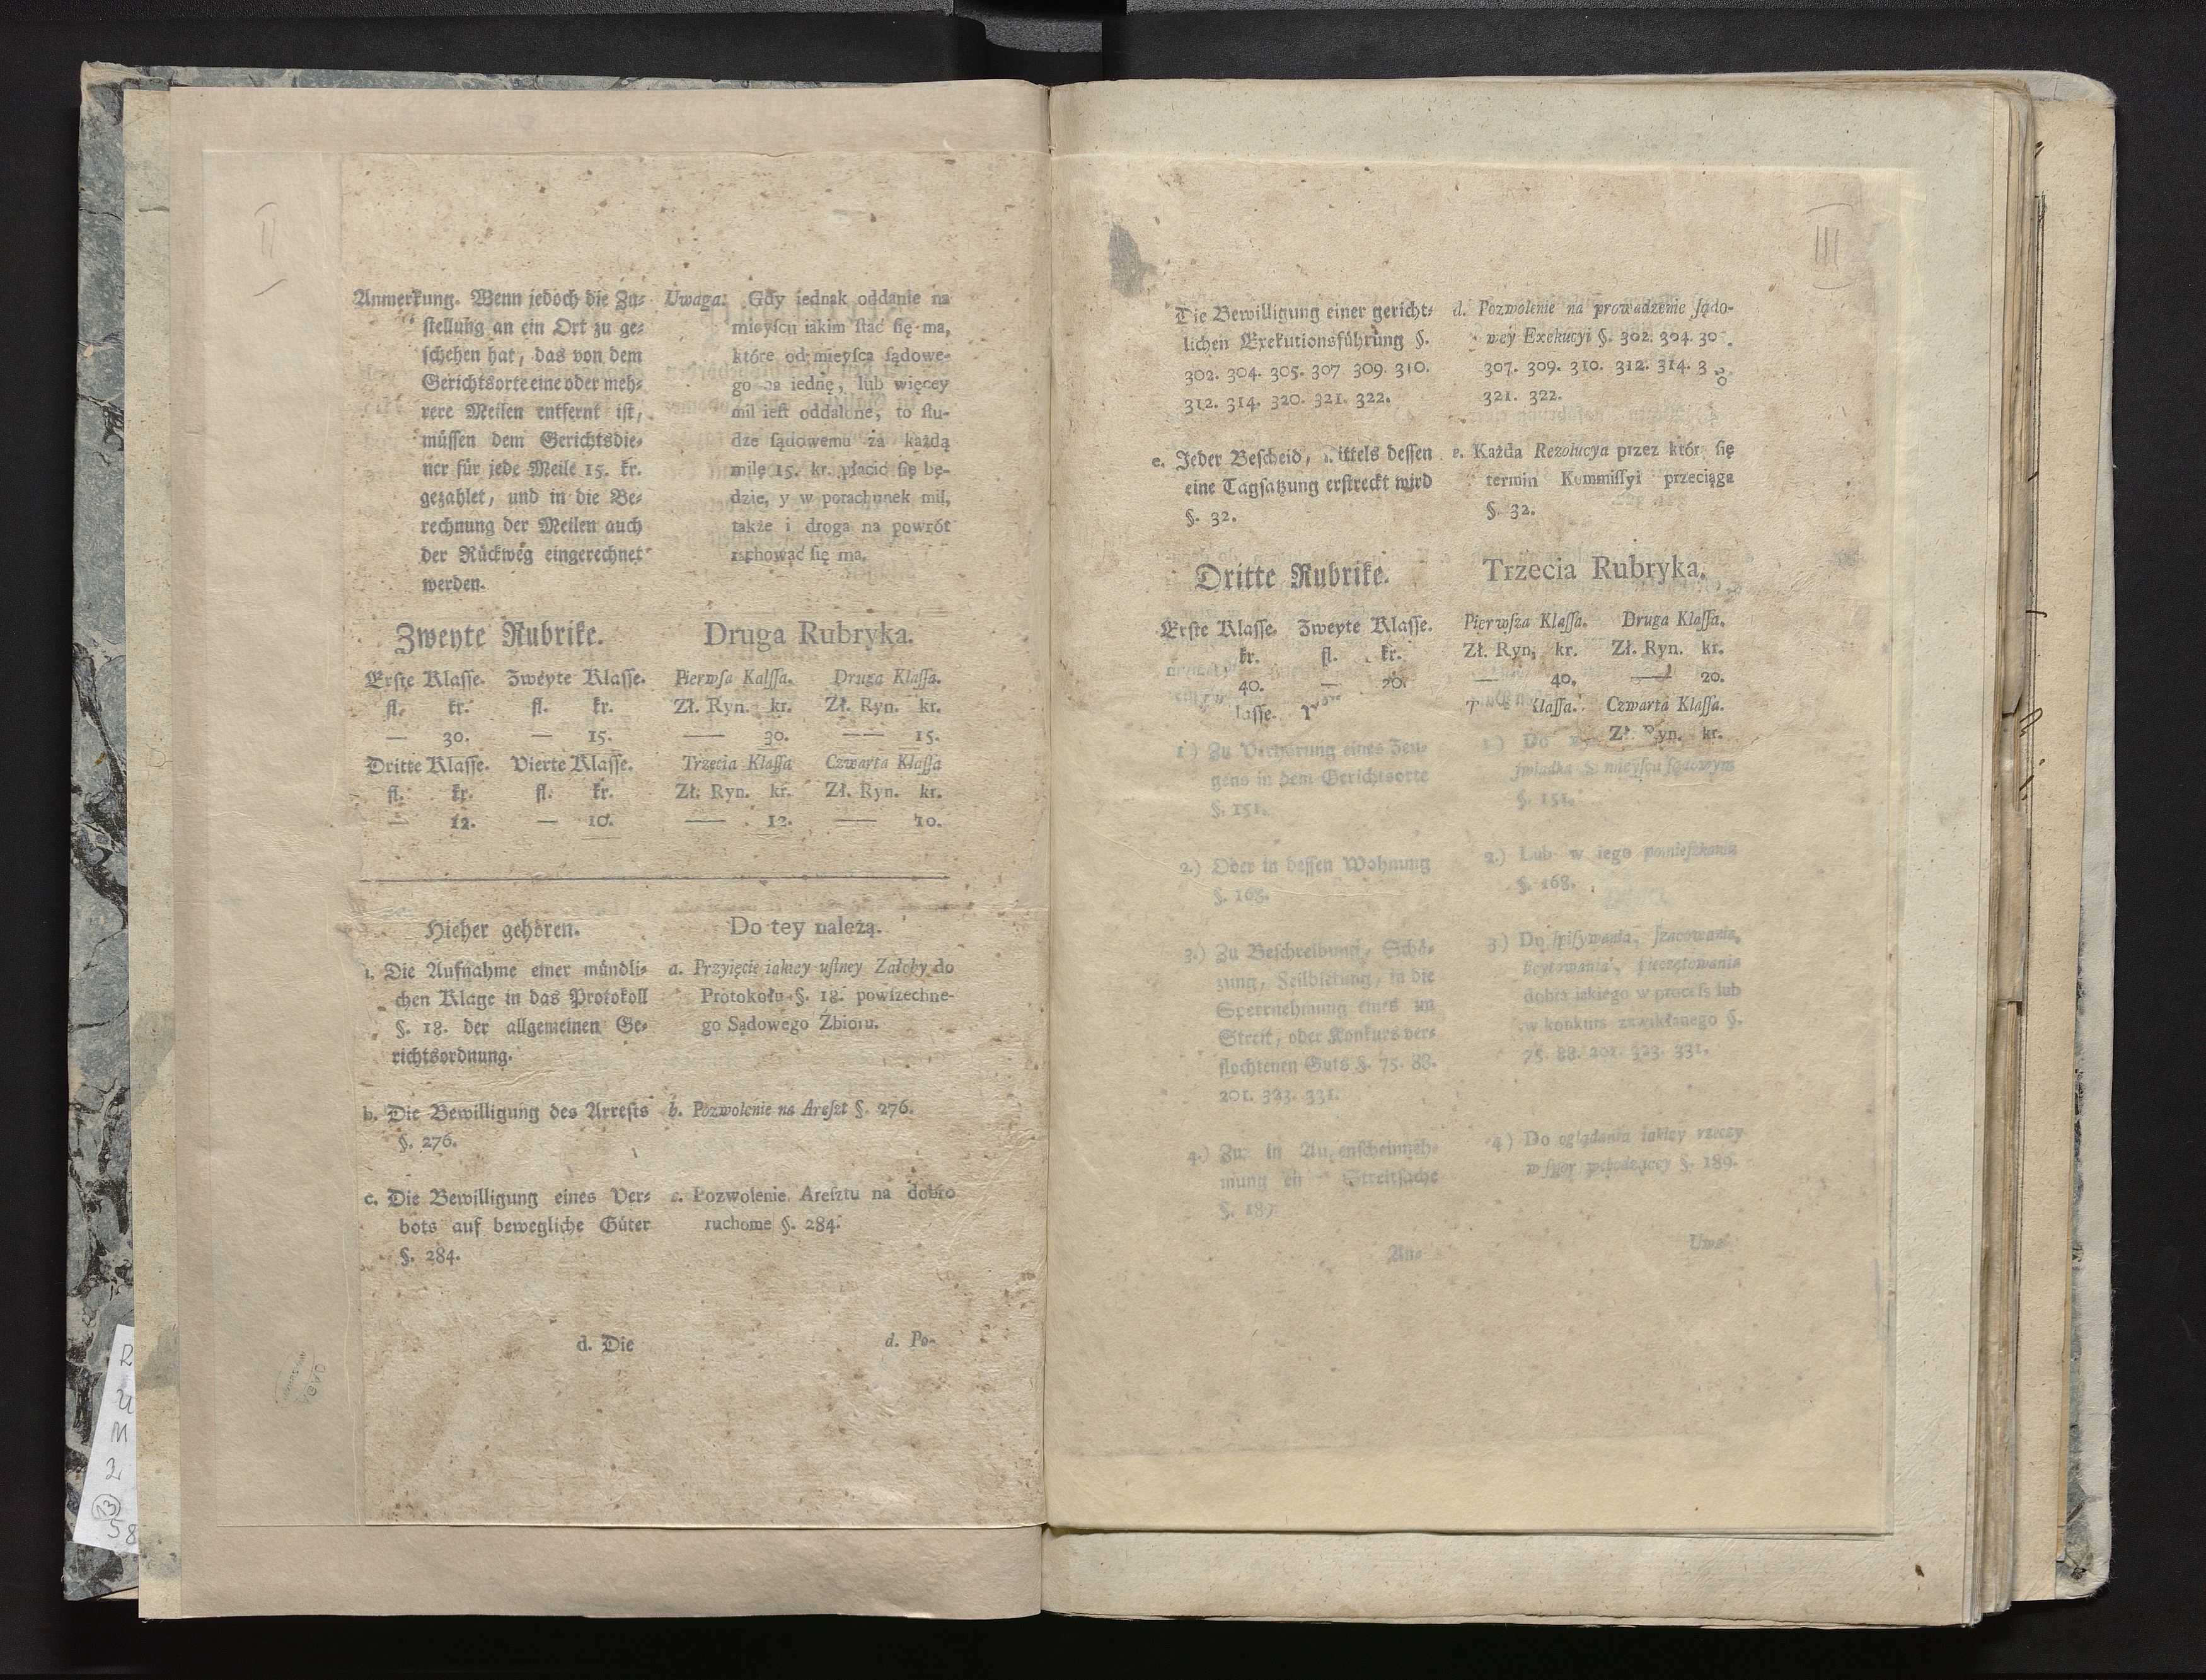 II
Anmerkung. Wenn jedoch die Zu⸗
stellung an ein Ort zu ge⸗
schehen hat, das von dem
Gerichtsorte eine oder meh⸗
rere Meilen entfernt ist,
müssen dem Gerichtsdie⸗
ner für jede Meile 15. kr.
gezahlet, und in die Be⸗
rechnung der Meilen auch
der Rückweg eingerechnet
werden.
Uwaga: Gdy iednak oddanie na
mieyſcu iakim ſtać ſię ma,
które od mieyſca ſądowe-
go na iednę, lub więcey
mil ieſt oddalone, to ſłu-
dze ſądowemu za każdą
milę 15. kr. płacić ſię bę-
dzie, y w porachunek mil,
także i droga na powrót
rachować ſię ma.
Zweyte Rubrike.
Erste Klasse. Zweyte Klasse.
fl. kr. fl. kr.
— 30. — 15.
Dritte Klasse. Vierte Klasse.
fl. kr. fl. kr.
— 12. — 10.
Druga Rubryka.
Pierwſa Kalſſa. Druga Klaſſa.
Zł. Ryn. kr. Zł. Ryn. kr.
— 30. — 15.
Trzecia Klaſſa Czwarta Klaſſa
Zł. Ryn. kr. Zł. Ryn. kr.
— 12. — 10.
Hieher gehören.
Die Aufnahme einer mündli⸗
chen Klage in das Protokoll
§. 18. der allgemeinen Ge⸗
richtsordnung.
b. Die Bewilligung des Arrests
§. 276.
c. Die Bewilligung eines Ver⸗
bots auf bewegliche Güter
§. 284.
d. Die
Do tey należą.
a. Przyięcie iakiey uſtney Załoby do
Protokołu §. 18. powſzechne-
go Sądowego Zbioru.
b. Pozwolenie na Areſzt §. 276.
c. Pozwolenie Areſztu na dobro
ruchome §. 284.
d. Po-
III
Die Bewilligung einer gericht⸗
lichen Exekutionsführung §.
302. 304. 305. 307 309. 310.
312. 314. 320. 321. 322.
e. Jeder Bescheid, mittels dessen
eine Tagsatzung erstreckt wird
§. 32.
d. Pozwolenie na prowadzenie ſądo-
wey Exekucyi §. 302. 304. 30
307. 309. 310. 312. 314. 3
321. 322.
e. Każda Rezolucya przez któr ſię
termin Kommiſſyi przeciąga
§. 32.
Dritte Rubrike.
Erste Klasse. Zweyte Klasse.
kr. fl. kr.
40. — 20.
lasse.
Trzecia Rubryka.
Pierwſza Klaſſa. Druga Klaſſa.
Zł. Ryn, kr. Zł. Ryn. kr.
— 40. — 20.
Klaſſa. Czwarta Klaſſa.
Zł. Ryn. kr.
1) Zu Verhörung eines Zeu⸗
gens in dem Gerichtsorte
§. 151.
2.) Oder in dessen Wohnung
§. 168.
3.) Zu Beschreibung, Schä⸗
zung, Feilbietung, in die
Sperrnehmung eines im
Streit, oder Konkurs ver⸗
flochtenen Guts §. 75. 88.
201. 323. 331.
4.) Zur in Augenscheinneh⸗
mung Streitsache
§. 189.
An⸗
1) Do
ſwiadka w mieyſcu ſądowym
§. 151.
2.) Lub w iego pomieſzkaniu
§. 168.
3) Do ſpiſywania, ſzacowania,
licytowania, pieczętowania
dobra iakiego w proceſs lub
w konkurs zawikłanego §.
75. 88. 201. 323. 331.
4) Do oglądania iakiey rzeczy
w ſpor wchodzącey §. 189.
Uwa
R
U
M
2
13
58